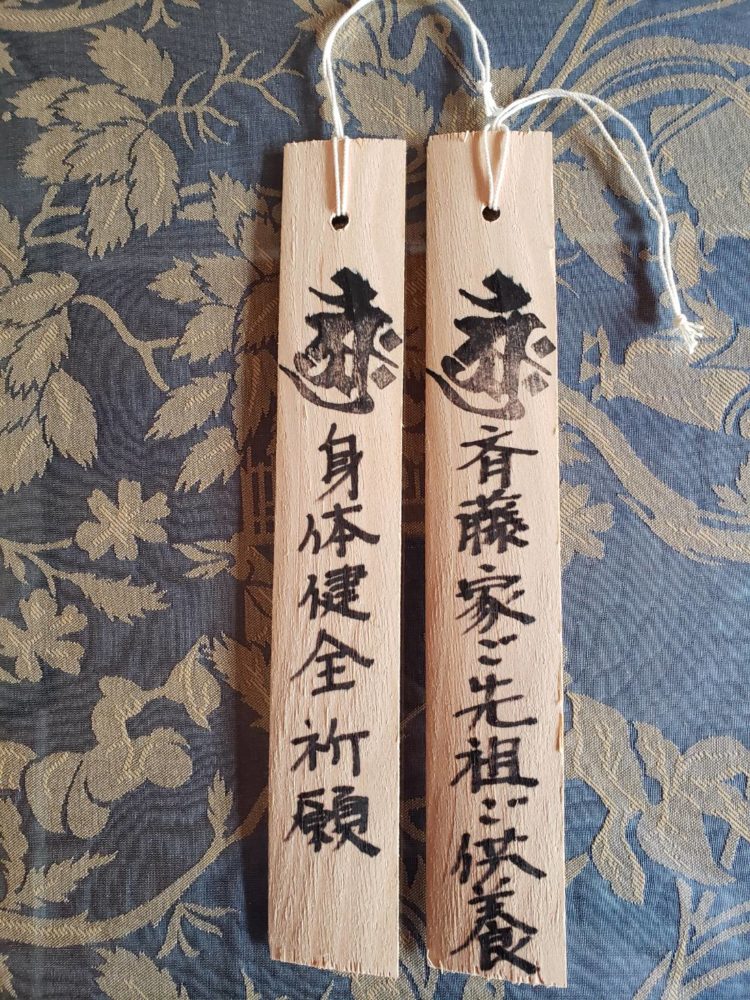 斉藤家ご先祖ご供養
身体健全祈願